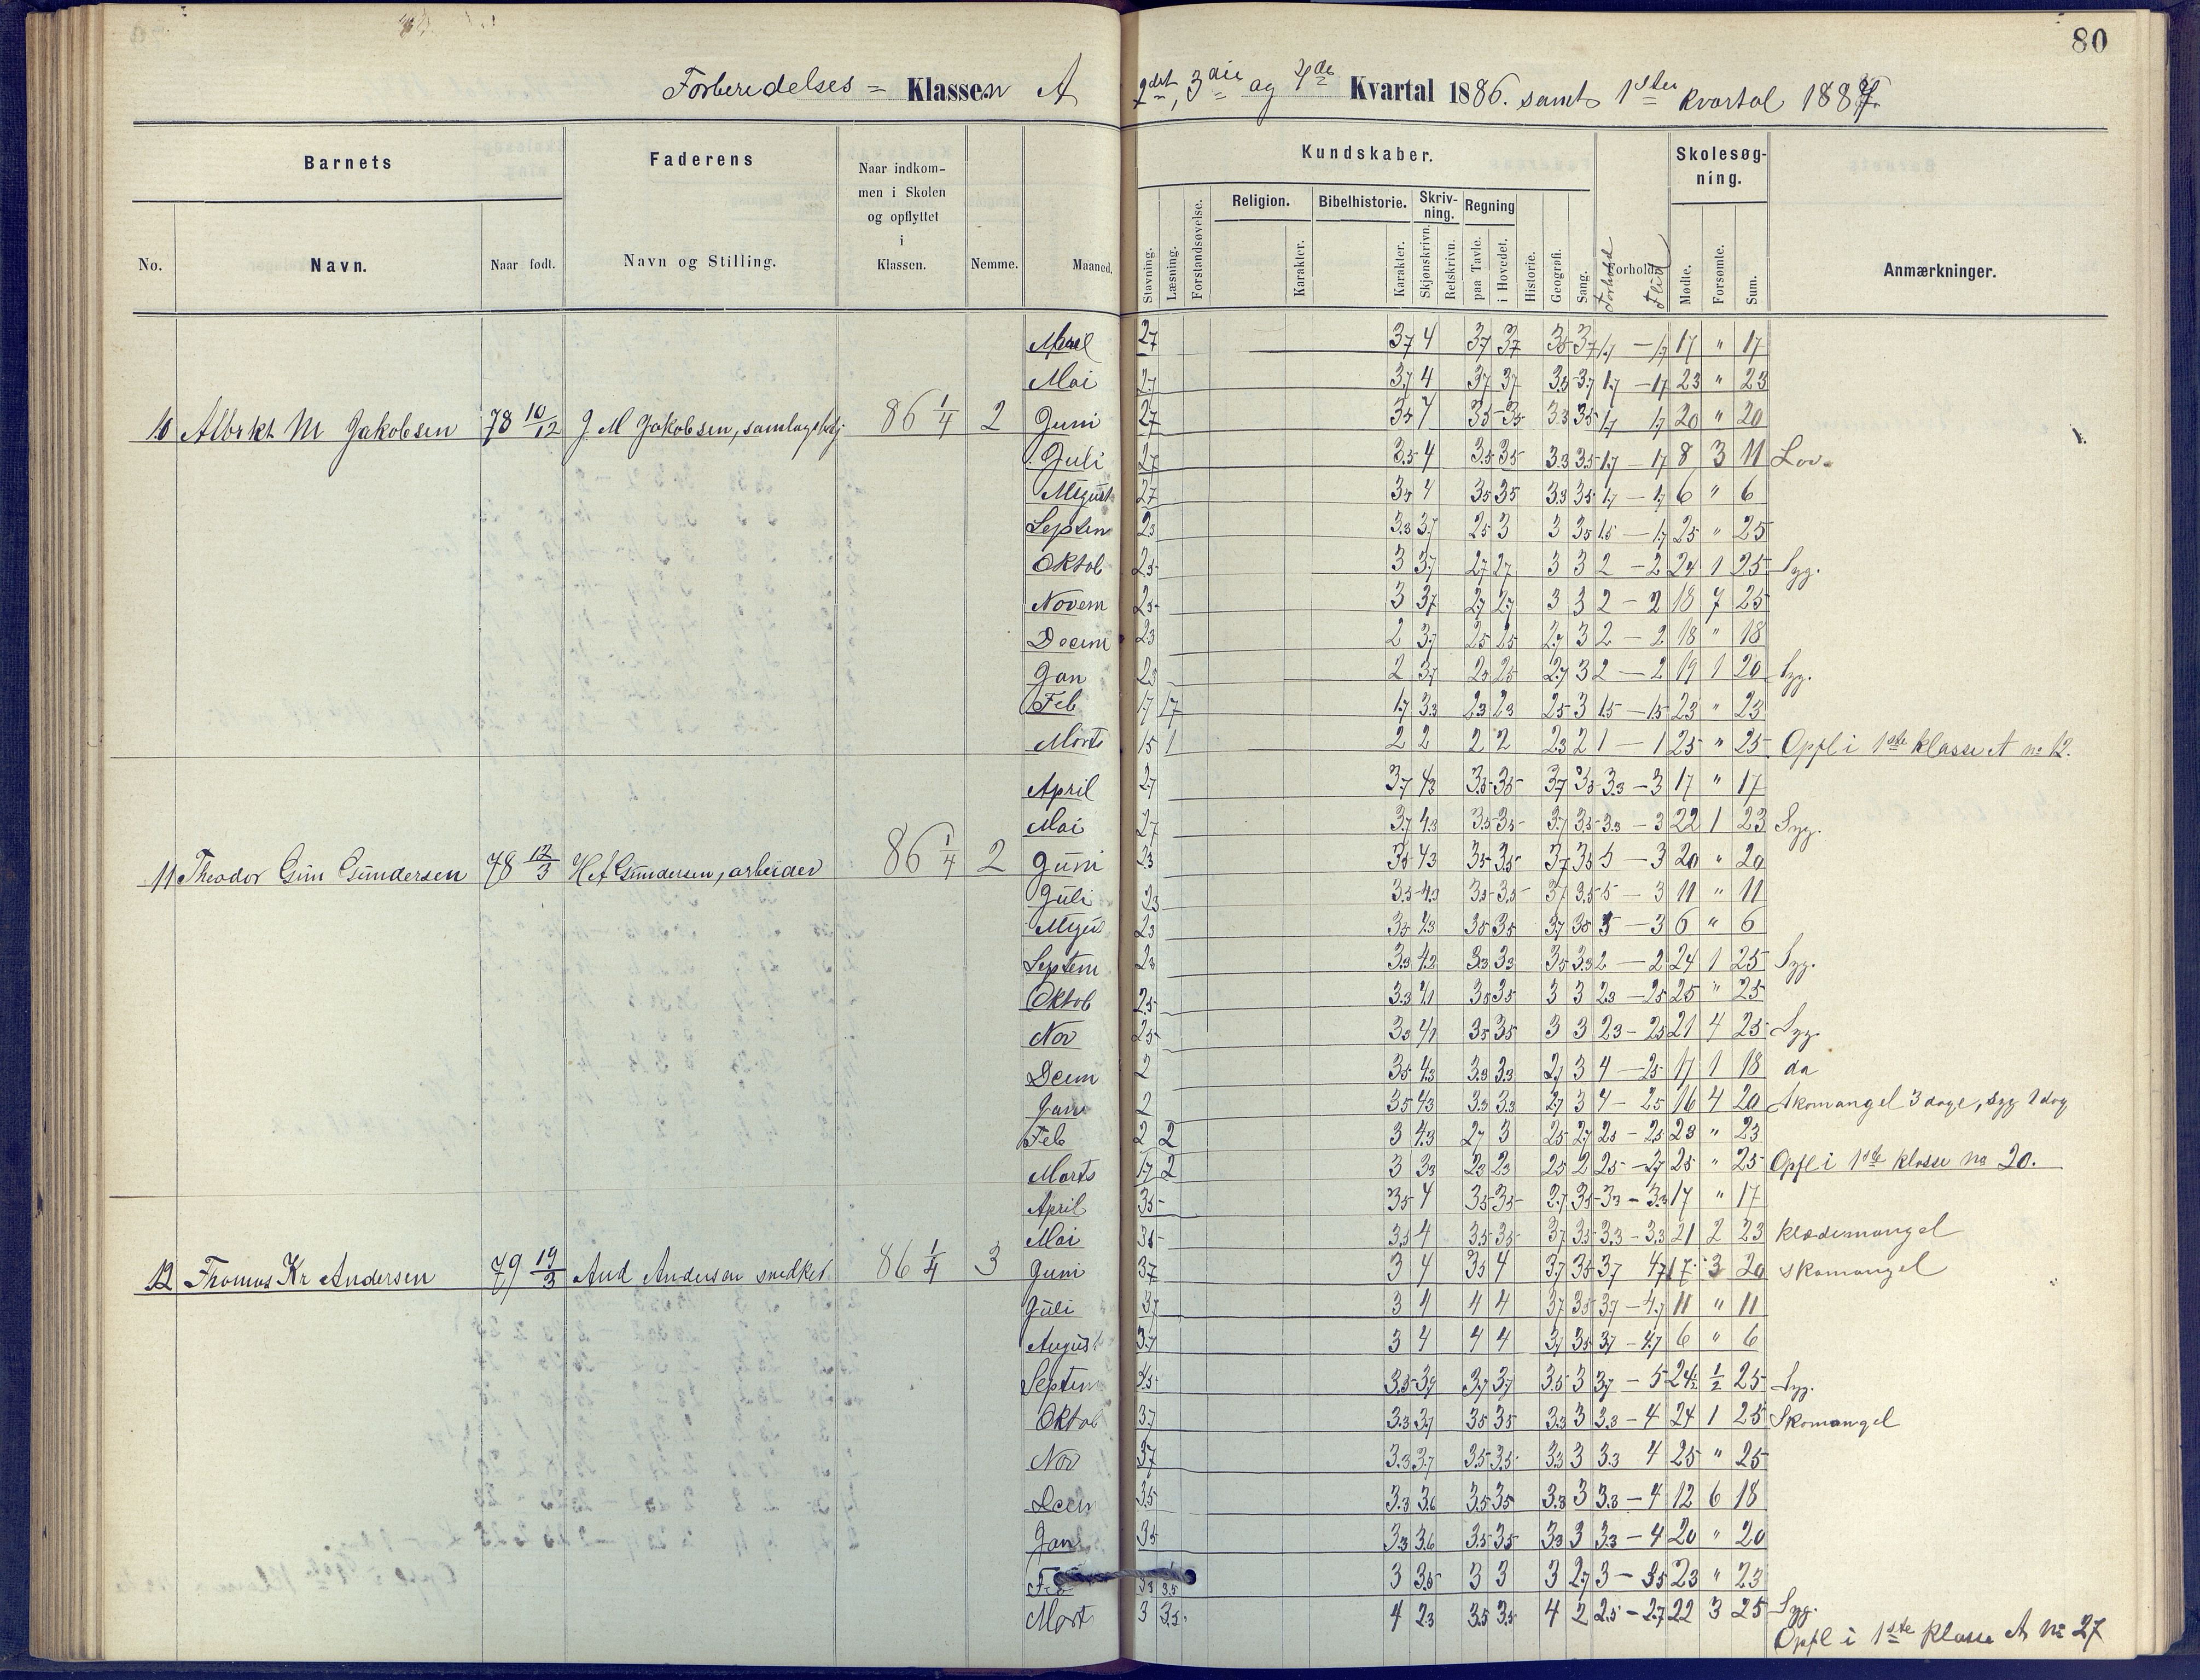 80
Forberedelses = Klassen A 2det, 3die og 4de Kvartal 1886. samt 1ste kvartal 1887.
Barnets Faderens Naar indkom- men i Skolen og opflyttet i Klassen. Nemme. Maaned.
No. Navn. Naar født. Navn og Stilling.
Kundskaber. Skolesøg- ning.
Stavning. Læsning. Forstandsøvelse. Religion. Karakter. Bibelhistorie. Karakter. Skriv- ning. Skjønskrivn. Retskrivn. Regning paa Tavle. i Hovedet. Historie. Geografi. Sang. Forhold Forhold Flid Mødte. Forsømte. Sum. Anmærkninger.
April 27 37 4 37 37 35 37 17 — 17 17 " 17
Mai 27 37 4 37 37 35 37 17 — 17 23 " 23
10 Albrkt M Jakobsen 78 10/12 J. M Jakobsen, 86 1/4 2 Juni 27 35 4 35 35 33 35 17 17 20 " 20
Juli 27 3.5 4 3.5 35 3.3 3.5 17 — 17 8 3 11 Lov.
August 27 35 4 35 35 33 35 17 — 17 6 " 6
Septem 23 3.3 37 25 3 3 35 15 — 17 25 " 25
Oktob 25 3 37 27 27 3 3 2 — 2 24 1 25 Syg.
Novem 25 3 37 27 27 3 3 2 — 2 18 7 25
Decem 23 2 37 25 25 27 3 2 — 2 18 " 18
Jan 23 2 37 25 25 27 3 2 — 2 19 1 20 Syg.
Feb 17 17 17 33 23 23 25 3 15 — 15 23 " 23
Marts 15 1 2 2 2 2 23 2 1 — 1 25 " 25 Opfl i 1ste klasse A no 12.
April 27 37 43 35 35 37 35 33 — 3 17 " 17
Mai 27 37 43 35 35 37 35 33 — 3 22 1 23 Syg.
11 Theodor Gun Gundersen 78 12/3 H A Gundersen, arbeider 86 1/4 2 Juni 23 35 43 35 35 37 35 5 — 3 20 " 20
Juli 23 35 43 35 35 37 35 5 — 3 11 " 11
August 23 35 43 35 35 37 35 5 — 3 6 " 6
Septem 23 33 43 33 33 35 33 2 — 2 24 1 25 Syg.
Oktob 25 33 41 35 35 3 3 23 — 25 25 " 25
Nov 25 35 41 35 35 3 3 23 — 25 21 4 25 Syg.
Decm 2 35 43 33 33 27 3 4 — 25 17 1 18 da
Janu 2 35 43 33 33 27 3 4 — 25 16 4 20 Skomangel 3 dage, syg 1 dag
Feb 2 2 3 43 27 3 25 27 25 — 25 23 " 23
Marts 17 2 3 33 23 23 25 2 25 — 27 25 " 25 Opfl i 1ste klasse no 20.
April 35 35 4 35 35 37 35 33 — 33 17 " 17
Mai 35 35 4 35 35 37 35 33 — 33 21 2 23 klædemangel
12 Thomas Kr Andersen 79 19/3 And Andersen snedker 86 1/4 3 Juni 37 3 4 35 4 37 35 37 47 17 3 20 skomangel
Juli 37 3 4 4 4 37 35 37 — 47 11 " 11
August 37 3 4 4 4 37 35 37 — 47 6 " 6
Septem 45 35 39 37 37 35 3 37 — 5 24½ ½ 25 Syg.
Oktob 37 33 37 35 35 33 3 33 — 4 24 1 25 Skomangel
Nov 37 33 37 35 35 33 3 33 4 25 " 25
Decm 35 33 36 35 35 33 3 33 — 4 12 6 18
Jan 35 33 36 35 35 33 3 33 — 4 20 " 20
Feb 33 35 3 35 3 3 3 27 3 — 35 23 " 23
Mart 3 35 4 23 35 35 4 2 25 — 27 22 3 25 Syg.
Opfl i 1ste klasse A no 27